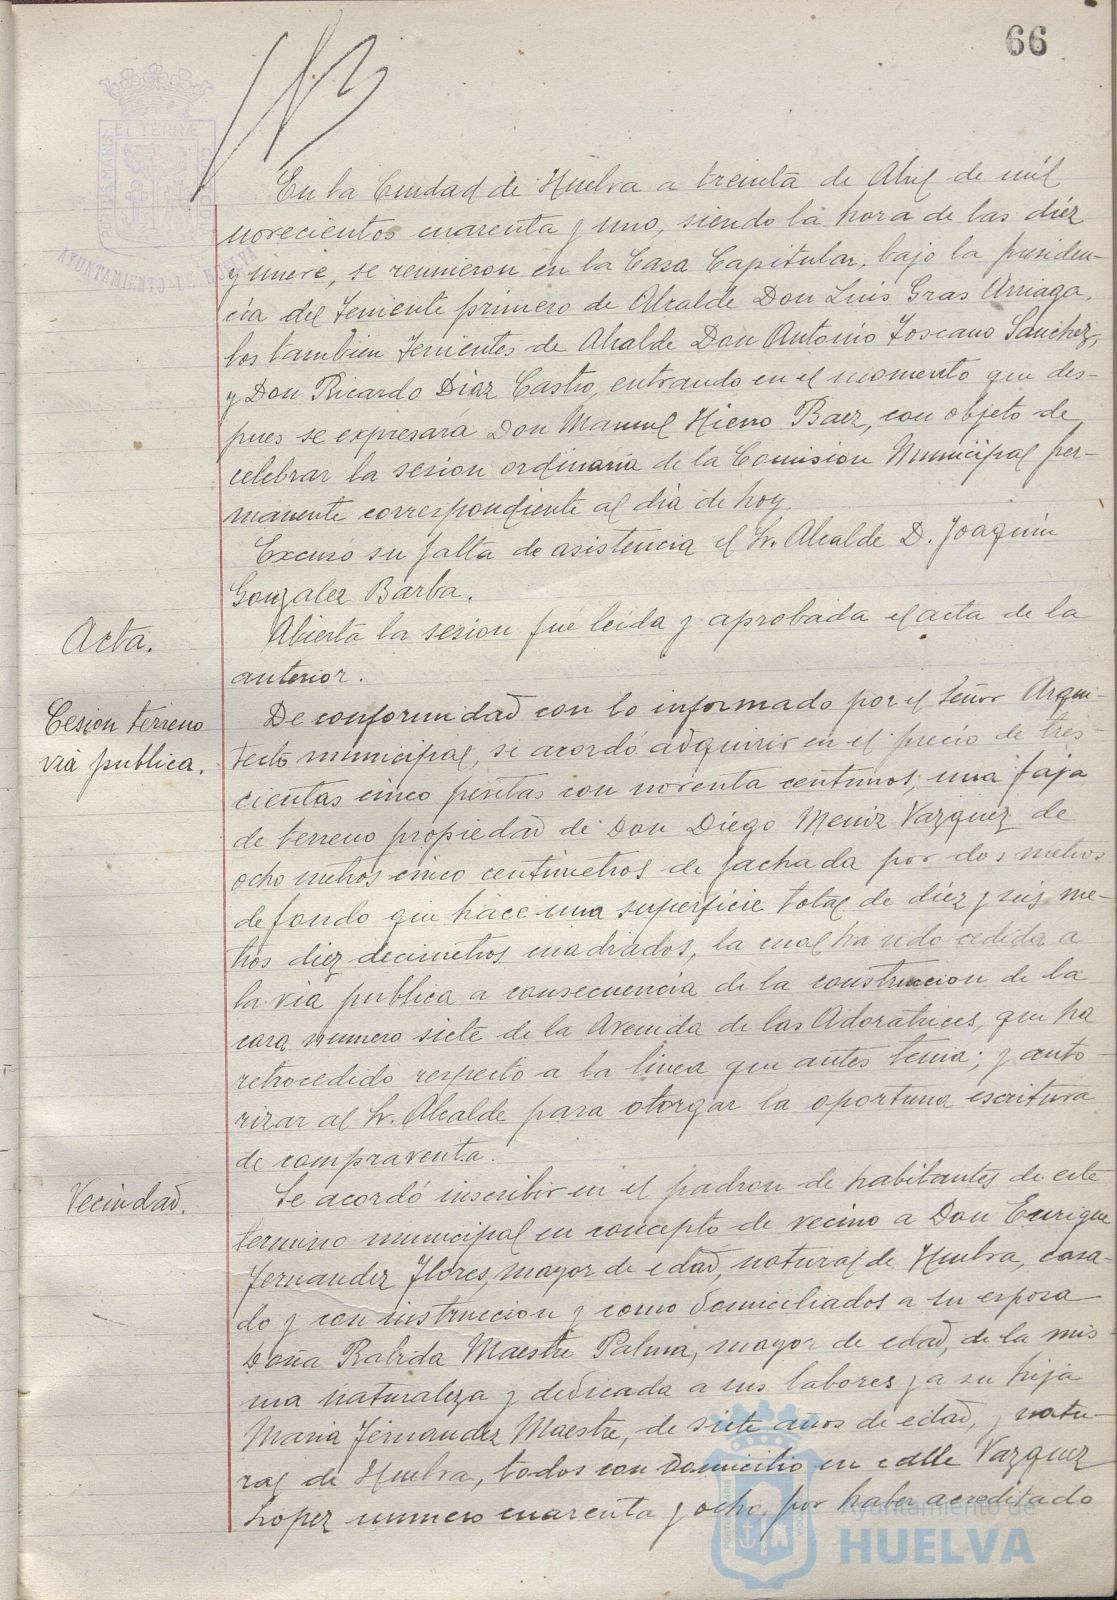 66
PORTUS MARIS
ET TERRÆ
AYUNTAMIENTO DE HUELVA
En la Ciudad de Huelva a treinta de Abril de mil
novecientos cuarenta y uno, siendo la hora de las diez
y nueve, se reunieron en la Casa Capitular, bajo la presiden-
cia del Teniente primero de Alcalde Don Luis Gras Arriaga,
los tambien Tenientes de Alcalde Don Antonio Toscano Sanchez,
y Don Ricardo Diaz Castro, entrando en el momento que des-
pues se expresará Don Manuel Hierro Baez, con objeto de
celebrar la sesion ordinaria de la Comision Municipal per-
manente correspondiente al dia de hoy.
Excusó su falta de asistencia el Sr. Alcalde D. Joaquin
Gonzalez Barba.
Acta.
Abierta la sesion fué leida y aprobada el acta de la
anterior.
Cesion terreno
via publica.
De conformidad con lo informado por el Señor Arqui-
tecto municipal, se acordó adquirir en el precio de tres-
cientas cinco pesetas con noventa centimos, una faja
de terreno propiedad de Don Diego Meniz Vazquez de
ocho metros cinco centimetros de fachada por dos metros
de fondo que hace una superficie total de diez y seis me-
tros diez decimetros cuadrados, la cual ha sido cedida a
la via publica a consecuencia de la construccion de la
casa numero siete de la Avenida de las Adoratrices, que ha
retrocedido respecto a la linea que antes tenia; y auto-
rizar al Sr. Alcalde para otorgar la oportuna escritura
de compraventa.
Vecindad.
Se acordó inscribir en el padron de habitantes de este
termino municipal en concepto de vecino a Don Enrique
Fernandez Flores, mayor de edad, natural de Huelva, casa-
do y con instruccion y como domiciliados a su esposa
Doña Rabida Maestre Palma, mayor de edad, de la mis-
ma naturaleza y dedicada a sus labores y a su hija
Maria Fernandez Maestre, de siete años de edad, y natu-
ral de Huelva, todos con domicilio en calle Vazquez
Lopez numero cuarenta y ocho, por haber acreditado
Ayuntamiento de
HUELVA